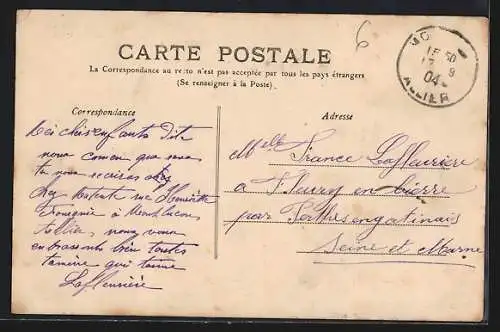 6
CARTE POSTALE
La Correspondance au recto n'est pas acceptée par tous les pays étrangers
(Se renseigner à la Poste).
MO
15 50
17 9
04
ALLIER
Correspondance
Adresse
Mes chers enfants Dite
nous comen que vous
tu nous ecrires chez
chez rue Henriette
à Montlucon
Allier, nous vous
embrassons bien toutes
tamère qui t'aime
Lafleurière
Melle France Lafleurière
a Fleury en bierre
par Perthesengatinais
Seine et Marne